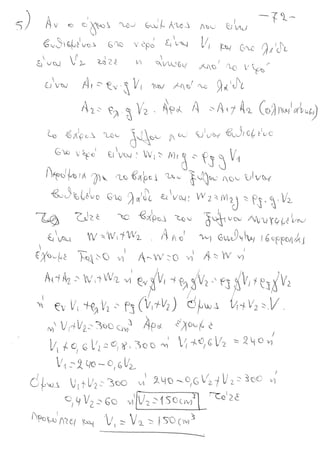 -72-
5) Αν ο όγκος του σώματος που είναι
βυθισμένος στο νερό είναι V₁ και στο λάδι
είναι V₂ τότε η άνωση από το νερό
είναι A₁ = ρν g V₁ και από το λάδι
A₂ = ρλ g V₂. Άρα A = A₁ + A₂ (ολική άνωση)
το βάρος του ξύλου που είναι βυθισμένο
στο νερό είναι: W₁ = m₁g = ρξ g V₁
Παρόμοια για το βάρος του ξύλου που είναι
βυθισμένο στο λάδι είναι: W₂ = m₂g = ρξ·g·V₂
Τότε το βάρος του ξύλινου αντικειμένου
είναι W = W₁ + W₂. Από τη συνθήκη ισορροπίας
έχουμε Fολ = 0 ή A - W = 0 ή A = W ή
A₁ + A₂ = W₁ + W₂ ή ρν g V₁ + ρλ g V₂ = ρξ g V₁ + ρξ g V₂
ή ρν V₁ + ρλ V₂ = ρξ (V₁ + V₂) Όμως V₁ + V₂ = V.
ή V₁ + V₂ = 300 cm³ Άρα έχουμε
V₁ + 0,6 V₂ = 0,8 · 300 ή V₁ + 0,6 V₂ = 240 ή
V₁ = 240 - 0,6 V₂
Όμως V₁ + V₂ = 300 ή 240 - 0,6 V₂ + V₂ = 300 ή
0,4 V₂ = 60 ή V₂ = 150 cm³ Τότε
προκύπτει και V₁ = V₂ = 150 cm³